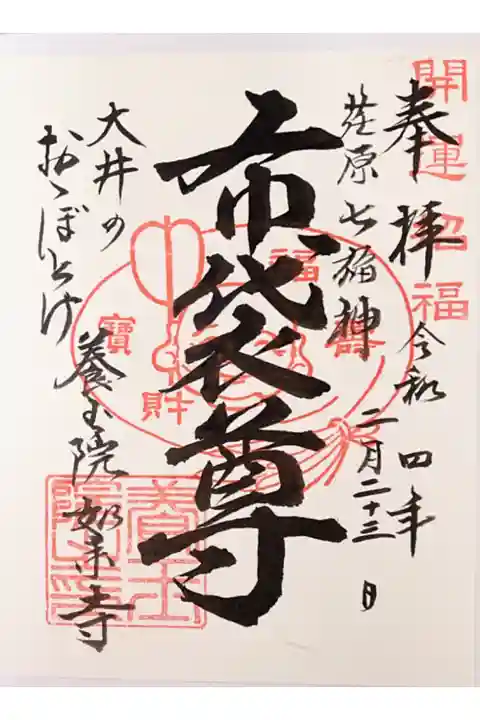 開運招福
奉拝 令和四年
荏原七福神 二月二十三日
布袋尊
福
壽
寶
財
大井の
おゝぼとけ
養玉院如来寺
養玉院印